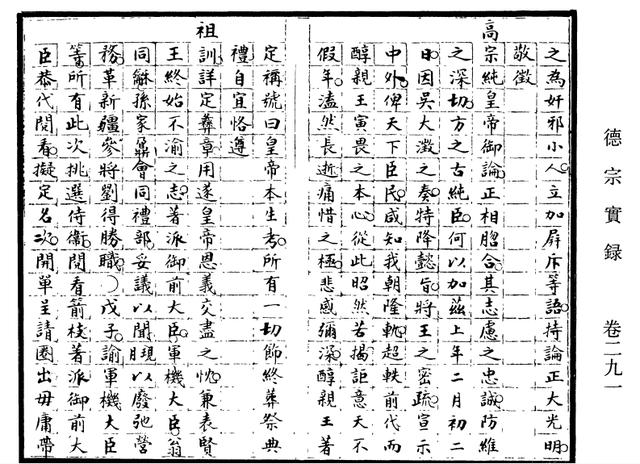 德宗實録　卷二九一
之為奸邪小人立加屏斥等語持論正大光明
敬徵
高宗純皇帝御論正相脗合其志慮之忠誠防維
之深切方之古純臣何以加茲上年二月初二
日因吳大澂之奏特降懿旨將王之密疏宣示
中外俾天下臣民咸知我朝隆軌超軼前代而
醇親王寅畏之本心從此昭然若揭詎意天不
假年溘然長逝痛惜之極悲感彌深醇親王著
定稱號曰皇帝本生考所有一切飾終葬祭典
禮自宜恪遵
祖訓詳定彝章用遂皇帝恩義交盡之忱兼表賢
王終始不渝之志著派御前大臣軍機大臣翁
同龢孫家鼐會同禮部妥議以聞現以廢弛營
務革新疆參將劉得勝職〇戊子諭軍機大臣
等所有此次挑選侍衛閱看箭枝著派御前大
臣恭代閱看擬定名次開單呈請圈出毋庸帶